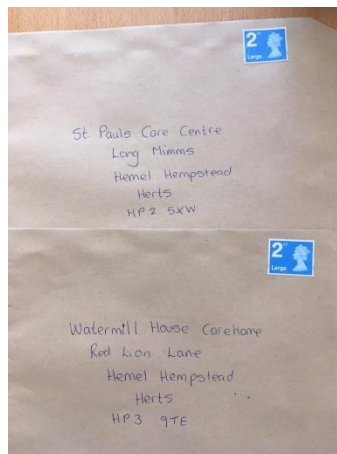 2ND
Large
St Pauls Care Centre
Long Mimms
Hemel Hempstead
Herts
HP2 5XW
2ND
Large
Watermill House Carehome
Red Lion Lane
Hemel Hempstead
Herts
HP3 9TE